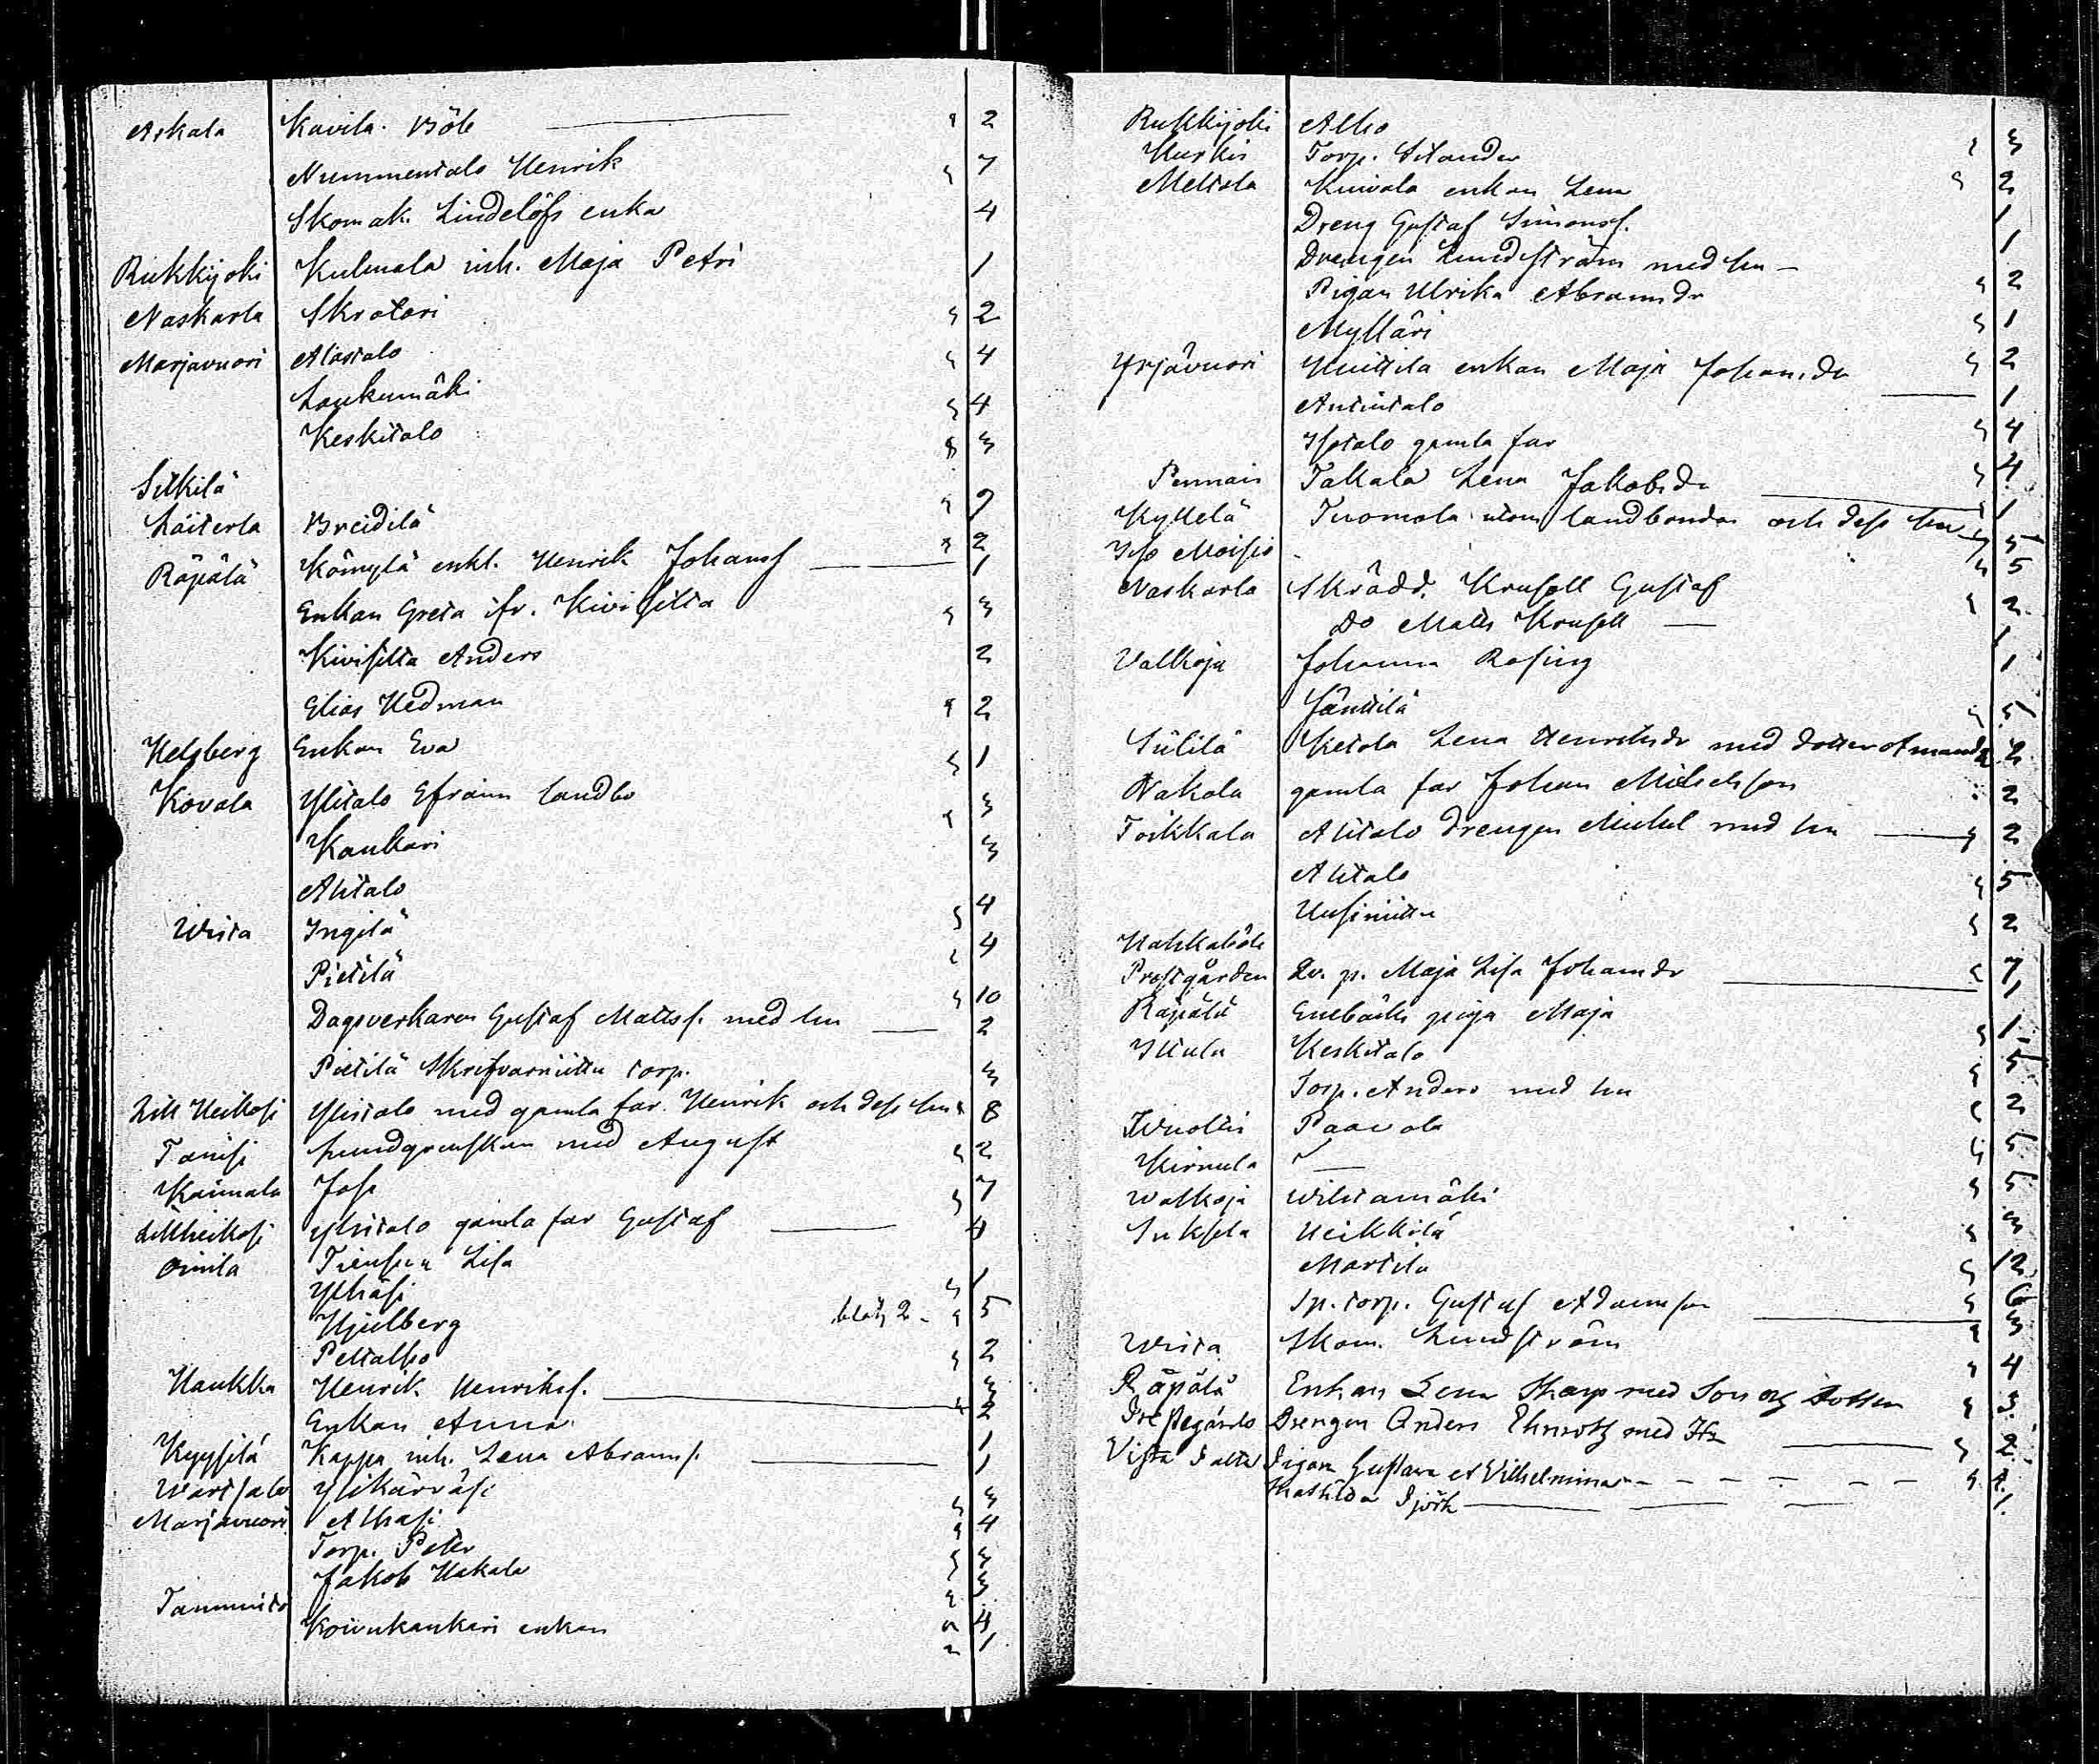 Askala Kavila Böle 2
Nummentalo Henrik 7
Skomak. Lindelöfs enka 4
Rukkijoki Kulmala inh. Maja Petri 1
Naskarla Skratari 2
Marjavuori Alastalo 4
Laukumäki 4
Keskitalo 3
Sitkilä 9
Loiterla Breidilä 2
Räpälä Kömylä enkl. Henrik Johansf 1
Enkan Greta ifr. Kivisilta 3
Kivisilta Anders 2
Elias Hedman 2
Helsberg Enkan Eva 1
Kovala Ylitalo Efraim landbo 3
Kankari 3
Alitalo 4
Wista Ingilä 4
Pietilä 10
Dagsverkaren Gustaf Mattsf. med hu 2
Pietilä Skrifvarniittu torp. 3
Lill Heikosi Ylistalo med gamla far Henrik och dess hu 8
Tanisi Lundgrenskan med August 2
Kaimala Jose 7
Lillheikosi Ylistalo gamla far Gustaf 4
Oinila Lisa 1
Ylhäsi
Hjulberg 2 5
Peltalho 2
Haukka Henrik Henriksf. 3
Enkan Anna 2
Kyysilä Kappa inh. Lena Abramsf. 1
Wartsala Ylikärväsi 3
Marjavuori Alhasi 4
Torp. Peter 3
Jakob Hakala 3
Tammisto 4
Koivukankari enkan 1
Rukkijoki Alho 3
Kurkis Torp. Silander 2
Meltola Knivola enkan Lena 1
Dreng Gustaf Simonsf. 1
Drengen Lundström med hu
Pigan Ulrika Abramsdr 2
Mylläri 1
Yrjävuori Knittila enkan Maja Johansdr 2
Antintalo 1
Isotalo gamla far 4
Pennais Takala Lena Jakobsdr 4
Kyllelä Tuomola utom landbonden och dess hu 1
Iso Moisio 5
Naskarla Skrädd. Krusell Gustaf 5
Do Matts Krusell 2
Valkoja Johanna Rosing 1
Jänttilä 5
Siililä Ketola Lena Henriksdr med dotter Amanda 2
Nakola gamla far Johan Mickelson 2
Toikkala Alitalo drengen Mickel med hu 2
Alitalo 5
Uusiniittu 2
Nahkaböle
Prostgården Qv. p. Maja Lisa Johansdr 7
Räpälä Enebäcks piga Maja 1
Ittula Keskitalo 5
Torp. Anders med hu 2
Paavola 5
Kirmula 5
Walkoja Wiliamäki 3
Suksela Heikkilä 12
Martila 6
Sp. torp. Gustaf Adamson 3
Wista Skom. Lundström 4
Räpälä Enkan Lena Skarp med Son och Dotter 3
Prestegårds Drengen Anders Ehnrooth med Hu 2
Vista Pigan Gustava et Vilhelmina
Mathilda Sjörk 1